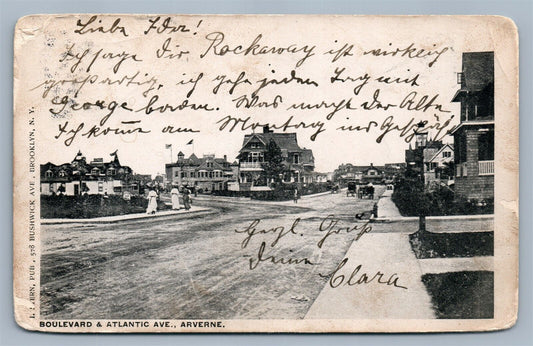 Liebe Ida!
Ich sage Dir Rockaway ist wirklich
großartig, ich gehe jeden Tag mit
George baden. Was macht der Alte
Ich komme am Montag ins Geschäft
Herzl. Gruß
deine
Clara
BOULEVARD & ATLANTIC AVE., ARVERNE.
PUB. 578 BUSHWICK AVE. BROOKLYN, N. Y.